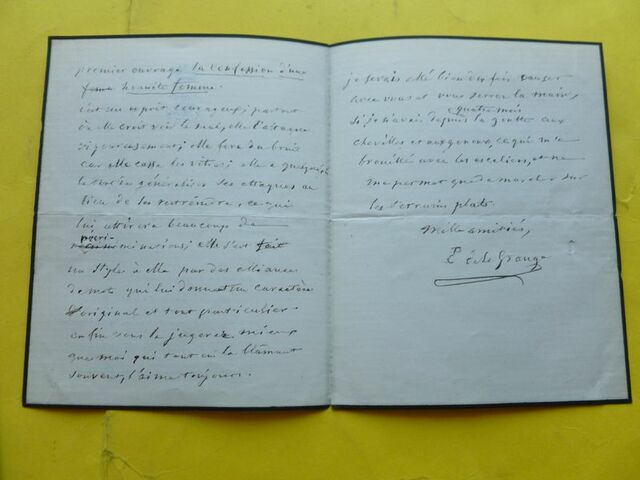 premier ouvrage la Confession d'une
femme honnête femme.
C'est un esprit courageux; partout
où elle croit voir le mal, elle l'attaque
vigoureusement; elle fera du bruit
car elle casse les vitres; elle a quelquefois
le tort de généraliser ses attaques au
lieu de les restreindre, ce qui
lui attirera beaucoup de
récriminations; elle s'est fait
un style à elle par des alliances
de mots qui lui donnent un caractère
original et tout particulier.
enfin vous la jugerez mieux
que moi qui tout en la blâmant
souvent, l'aime toujours.
je serais allé bien des fois causer
avec vous et vous serrer la main,
si je n'avais depuis quatre mois la goutte aux
chevilles et aux genoux, ce qui m'a
brouillé avec les escaliers, et ne
me permet que de marcher sur
les terrains plats.
Mille amitiés,